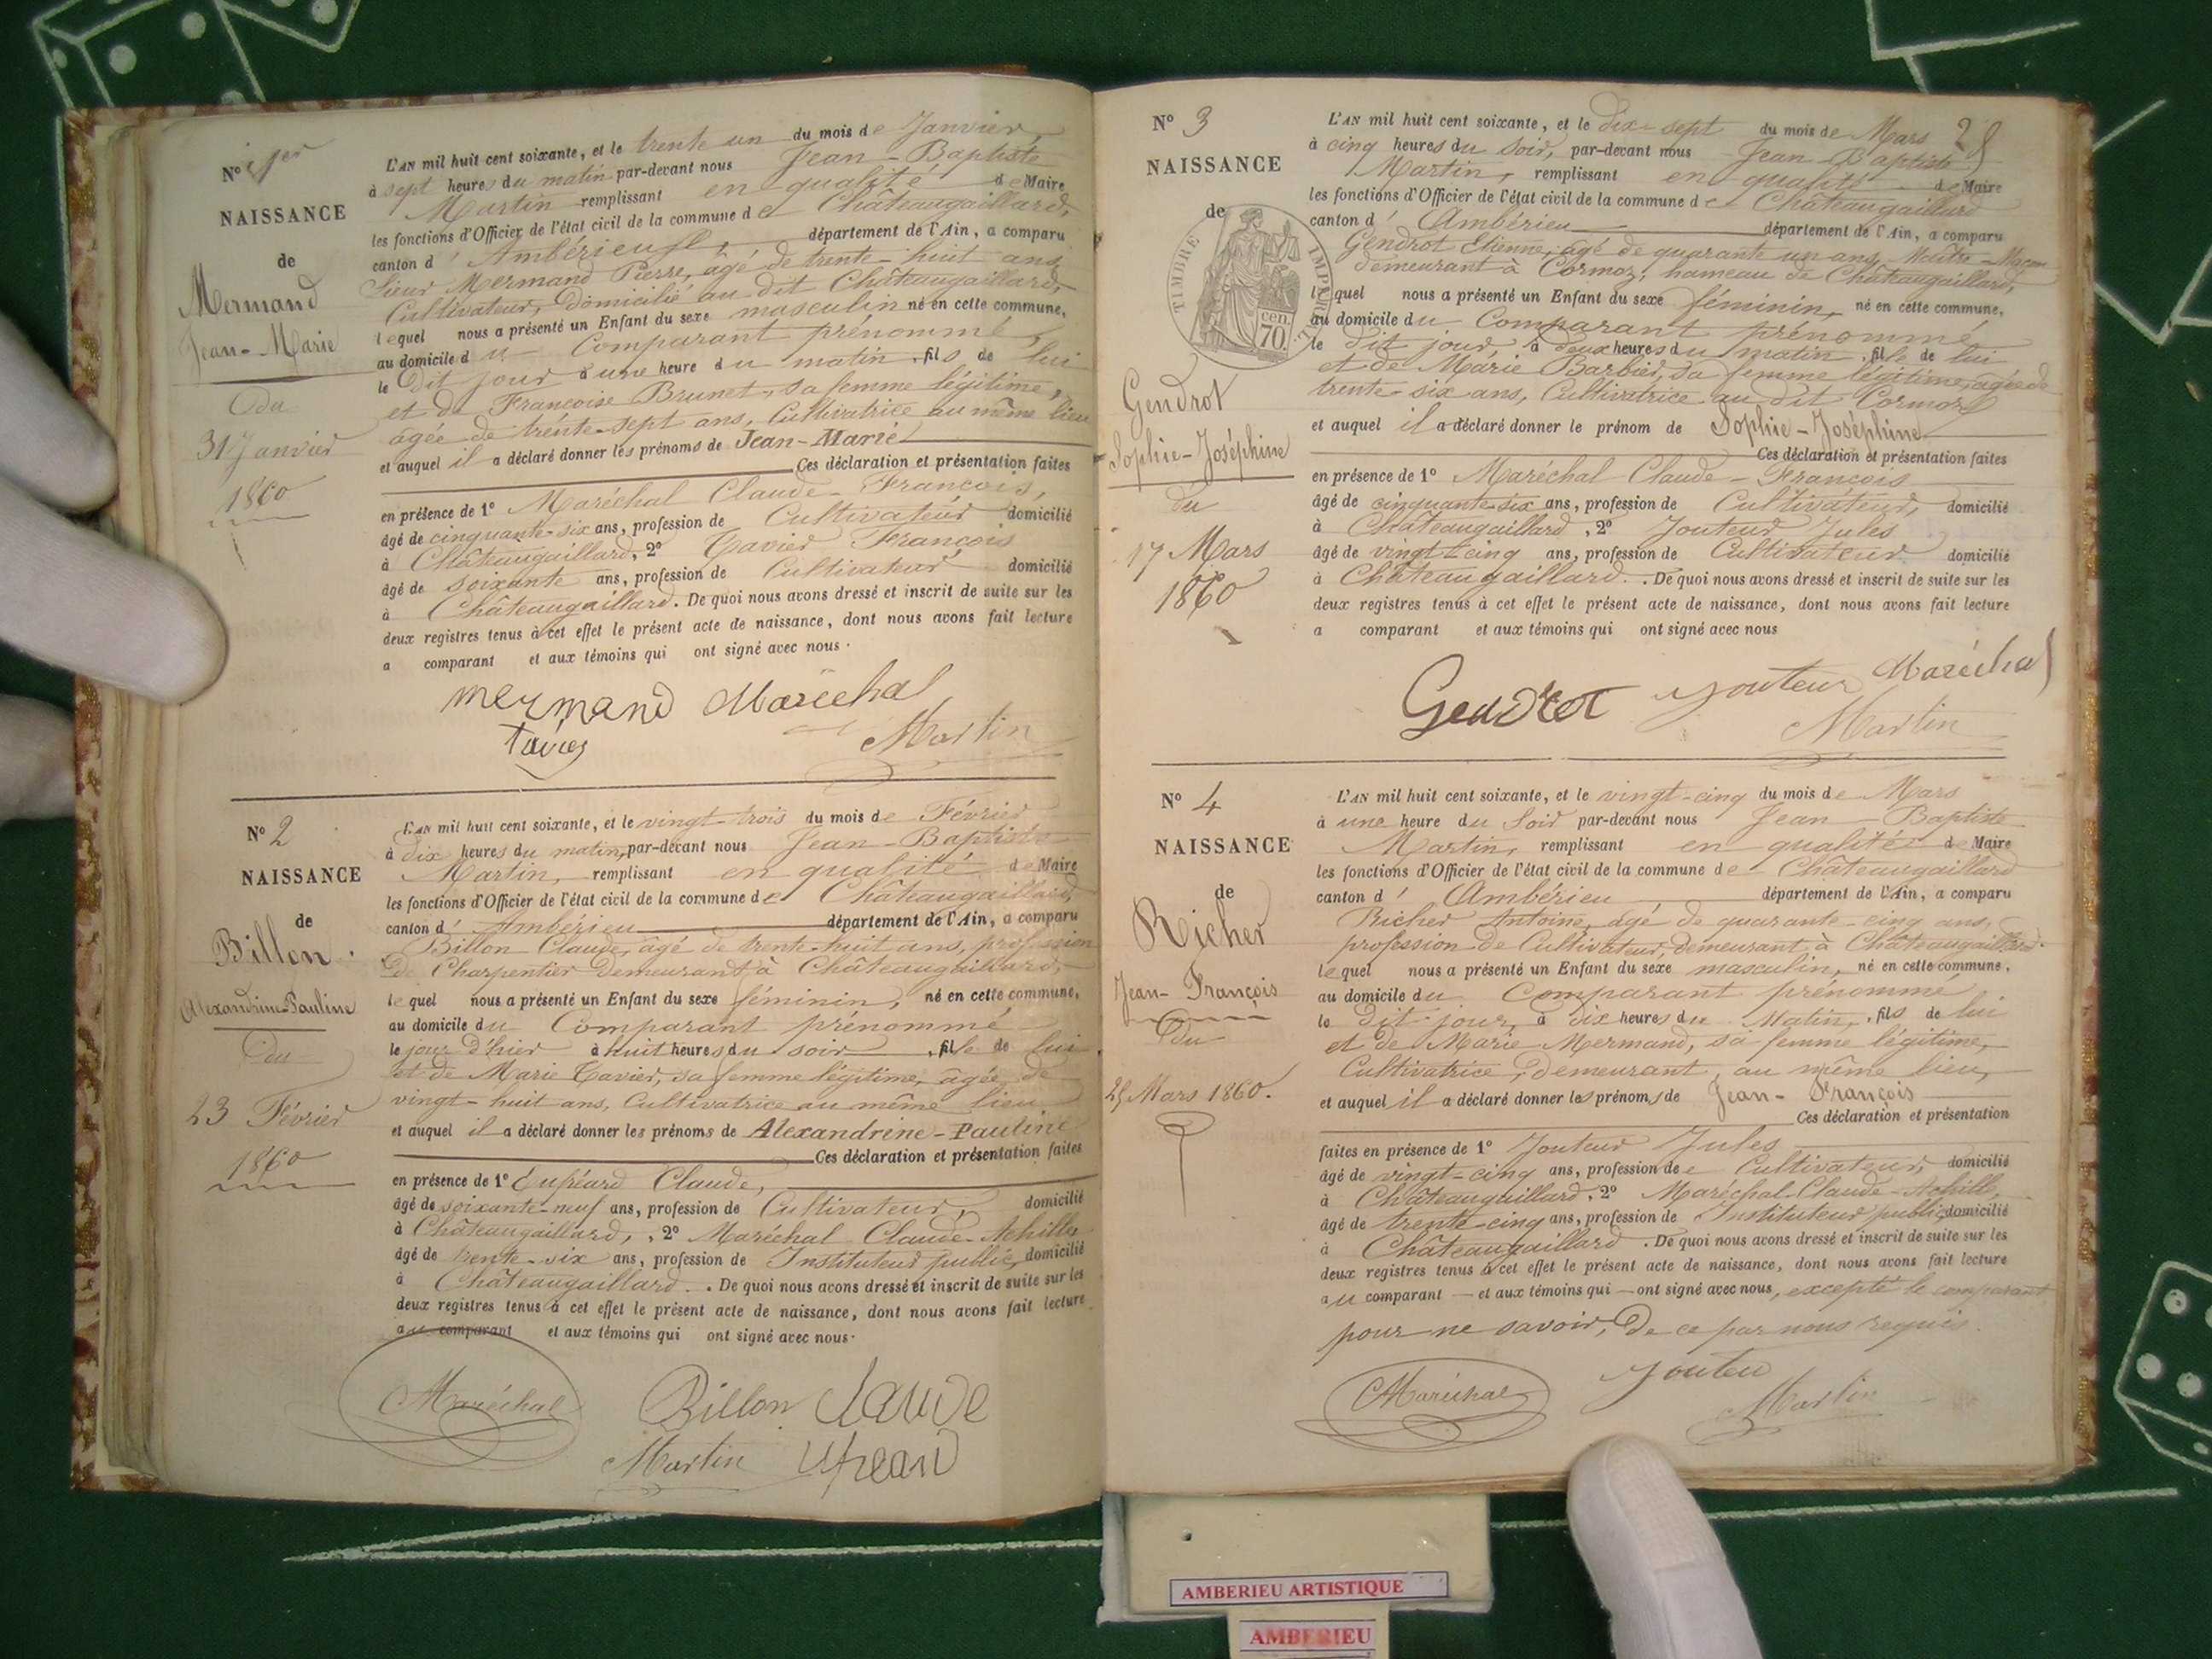 N° 1er
NAISSANCE
de
Mermand
Jean-Marie
Du
31 Janvier
1860
L'AN mil huit cent soixante, et le trente un du mois de Janvier,
à sept heures du matin par-devant nous Jean-Baptiste
Martin remplissant en qualité de Maire
les fonctions d'Officier de l'état civil de la commune de Châteaugaillard,
canton d' Ambérieu, département de l'Ain, a comparu
Sieur Mermand Pierre, âgé de trente-huit ans,
Cultivateur, Domicilié au dit Châteaugaillard,
lequel nous a présenté un Enfant du sexe masculin né en cette commune,
au domicile du Comparant prénommé,
le Dit jour à une heure du matin, fils de lui
et de Françoise Brunet, sa femme légitime,
âgée de trente-sept ans, Cultivatrice au même lieu
et auquel il a déclaré donner les prénoms de Jean-Marie
Ces déclaration et présentation faites
en présence de 1° Maréchal Claude-François,
âgé de cinquante-six ans, profession de Cultivateur domicilié
à Châteaugaillard, 2° Tavier François
âgé de soixante ans, profession de Cultivateur domicilié
à Châteaugaillard. De quoi nous avons dressé et inscrit de suite sur les
deux registres tenus à cet effet le présent acte de naissance, dont nous avons fait lecture
a comparant et aux témoins qui ont signé avec nous.
Mermand Maréchal
tavier Martin
N° 2
NAISSANCE
de
Billon.
Alexandrine-Pauline
Du
23 Février
1860
L'AN mil huit cent soixante, et le vingt-trois du mois de Février
à dix heures du matin, par-devant nous Jean-Baptiste
Martin, remplissant en qualité de Maire
les fonctions d'Officier de l'état civil de la commune de Châteaugaillard,
canton d' Ambérieu département de l'Ain, a comparu
Billon Claude, âgé de trente-huit ans, profession
de Charpentier Demeurant à Châteaugaillard,
lequel nous a présenté un Enfant du sexe féminin, né en cette commune,
au domicile du Comparant prénommé,
le jour d'hier à huit heures du soir, fille de lui
et de Marie Tavier, sa femme légitime, âgée de
vingt-huit ans, Cultivatrice au même lieu
et auquel il a déclaré donner les prénoms de Alexandrine-Pauline
Ces déclaration et présentation faites
en présence de 1° Claude,
âgé de soixante-neuf ans, profession de Cultivateur, domicilié
à Châteaugaillard, 2° Maréchal Claude-Achille,
âgé de trente-six ans, profession de Instituteur public, domicilié
à Châteaugaillard. De quoi nous avons dressé et inscrit de suite sur les
deux registres tenus à cet effet le présent acte de naissance, dont nous avons fait lecture
au comparant et aux témoins qui ont signé avec nous.
Maréchal Billon Claude
Martin
N° 3
NAISSANCE
de
TIMBRE IMPERIAL
70 cen.
Gendrot
Sophie-Joséphine
du
17 Mars
1860
L'AN mil huit cent soixante, et le dix-sept du mois de Mars
à cinq heures du Soir, par-devant nous Jean Baptiste
Martin, remplissant en qualité de Maire
les fonctions d'Officier de l'état civil de la commune de Châteaugaillard
canton d' Ambérieu département de l'Ain, a comparu
Gendrot Etienne, âgé de quarante un ans, Maître-Maçon
demeurant à Cormoz, hameau de Châteaugaillard,
lequel nous a présenté un Enfant du sexe féminin, né en cette commune,
au domicile du Comparant prénommé,
le dit jour, à deux heures du matin, fille de lui
et de Marie Barbier, sa femme légitime, âgée de
trente-six ans, Cultivatrice au dit Cormoz
et auquel il a déclaré donner le prénom de Sophie-Joséphine
Ces déclaration et présentation faites
en présence de 1° Maréchal Claude-François
âgé de cinquante-six ans, profession de Cultivateur, domicilié
à Châteaugaillard, 2° Jouteur Jules
âgé de vingt-cinq ans, profession de Cultivateur domicilié
à Châteaugaillard. De quoi nous avons dressé et inscrit de suite sur les
deux registres tenus à cet effet le présent acte de naissance, dont nous avons fait lecture
a comparant et aux témoins qui ont signé avec nous
Gendrot Jouteur Maréchal
Martin
N° 4
NAISSANCE
de
Richer
Jean-François
Du
25 Mars 1860.
L'AN mil huit cent soixante, et le vingt-cinq du mois de Mars
à une heure du Soir par-devant nous Jean Baptiste
Martin, remplissant en qualité de Maire
les fonctions d'Officier de l'état civil de la commune de Châteaugaillard
canton d' Ambérieu département de l'Ain, a comparu
Richer Antoine, âgé de quarante-cinq ans,
profession de Cultivateur, demeurant à Châteaugaillard.
lequel nous a présenté un Enfant du sexe masculin, né en cette commune,
au domicile du Comparant prénommé
le Dit jour, à dix heures du Matin, fils de lui
et de Marie Mermand, sa femme légitime,
Cultivatrice, Demeurant au même lieu,
et auquel il a déclaré donner les prénoms de Jean-François
Ces déclaration et présentation
faites en présence de 1° Jouteur Jules
âgé de vingt-cinq ans, profession de Cultivateur, domicilié
à Châteaugaillard, 2° Maréchal Claude-Achille,
âgé de trente-cinq ans, profession de Instituteur public, domicilié
à Châteaugaillard. De quoi nous avons dressé et inscrit de suite sur les
deux registres tenus à cet effet le présent acte de naissance, dont nous avons fait lecture
au comparant et aux témoins qui ont signé avec nous, excepté le comparant
pour ne savoir, De ce par nous requis.
Maréchal Jouteu Martin
AMBERIEU ARTISTIQUE
AMBERIEU